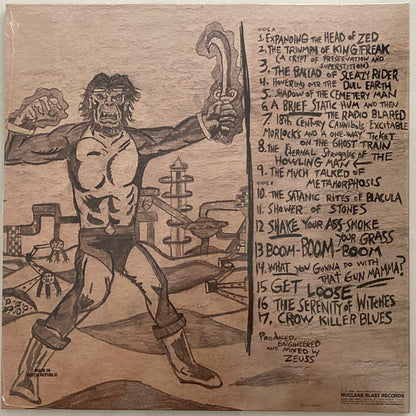 SIDE A
1. EXPANDING THE HEAD OF ZED
2. THE TRIUMPH OF KING FREAK
(A CRYPT OF PRESERVATION AND
SUPERSTITION)
3. THE BALLAD OF SLEAZY RIDER
4. HOVERING OVER THE DULL EARTH
5. SHADOW OF THE CEMETERY MAN
6. A BRIEF STATIC HUM AND THEN
THE RADIO BLARED
7. 18TH CENTURY CANNIBALS, EXCITABLE
MORLOCKS AND A ONE-WAY TICKET
ON THE GHOST TRAIN
8. THE ETERNAL STRUGGLES OF THE
HOWLING MAN
9. THE MUCH TALKED OF
METAMORPHOSIS
10. THE SATANIC RITES OF BLACULA
11. SHOWER OF STONES
12 SHAKE YOUR ASS-SMOKE
YOUR GRASS
13 BOOM-BOOM-BOOM
14. WHAT YOU GONNA DO WITH
THAT GUN MAMMA?
15 GET LOOSE
16 THE SERENITY OF WITCHES
17. CROW KILLER BLUES
PRODUCED,
ENGINEERED
AND MIXED BY
ZEUSS
MADE IN
CZECH REPUBLIC
NUCLEAR BLAST RECORDS